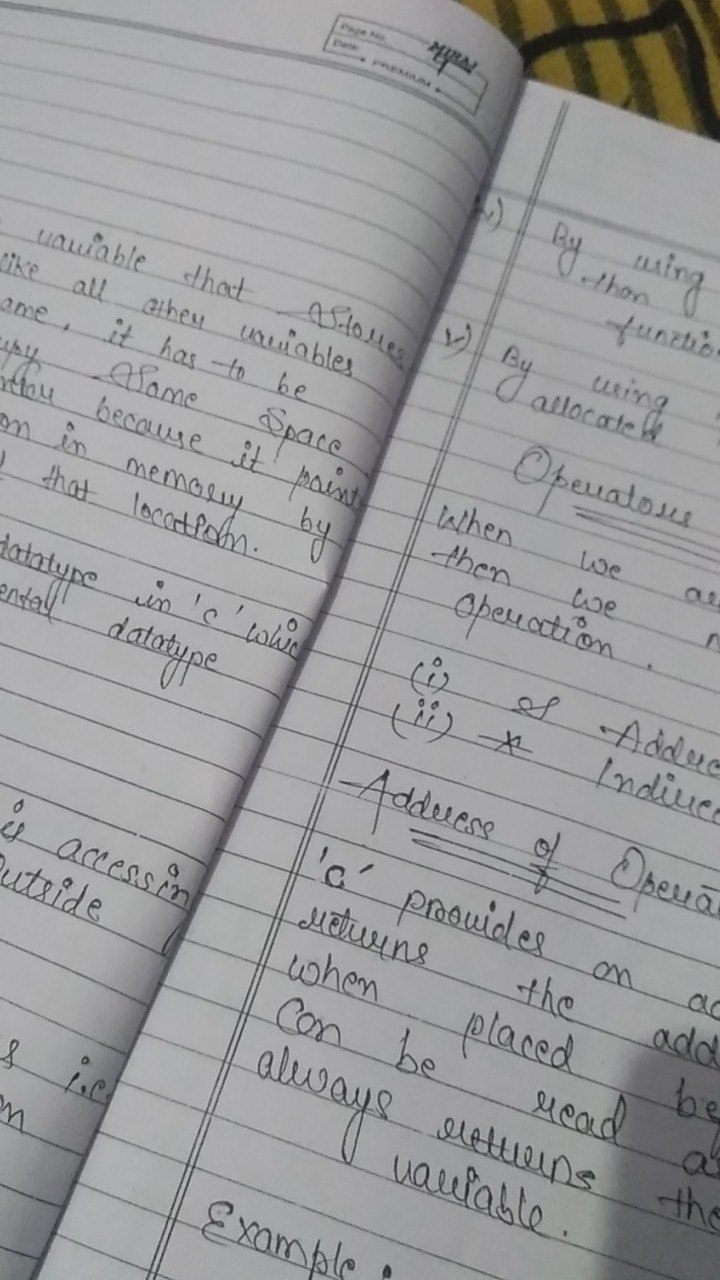 Page No.
Date:
PREMIUM
variable that stores
like all other variables
ame, it has to be
upy some space
because it point
on in memory by
that location.
datatype in 'c' whic
ental datatype
is accessin
outside
i.e.
By using
than
function
v) By using
allocated
Operators
When we
then we
operation.
(i) & Addre
(ii) * Indirec
Address of Opera
'C' provides an ad
returns the add
when placed be
can be read a
always returns the
variable.
Example :